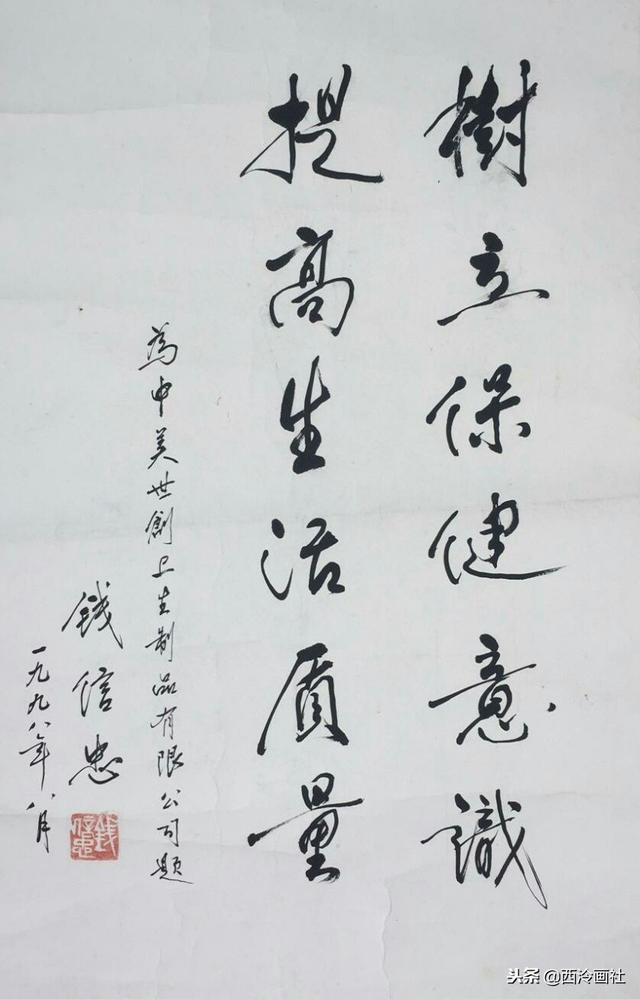 樹立保健意識
提高生活质量
為中美世創卫生制品有限公司題
钱信忠
一九九八年八月
钱信忠
头条@西泠画社